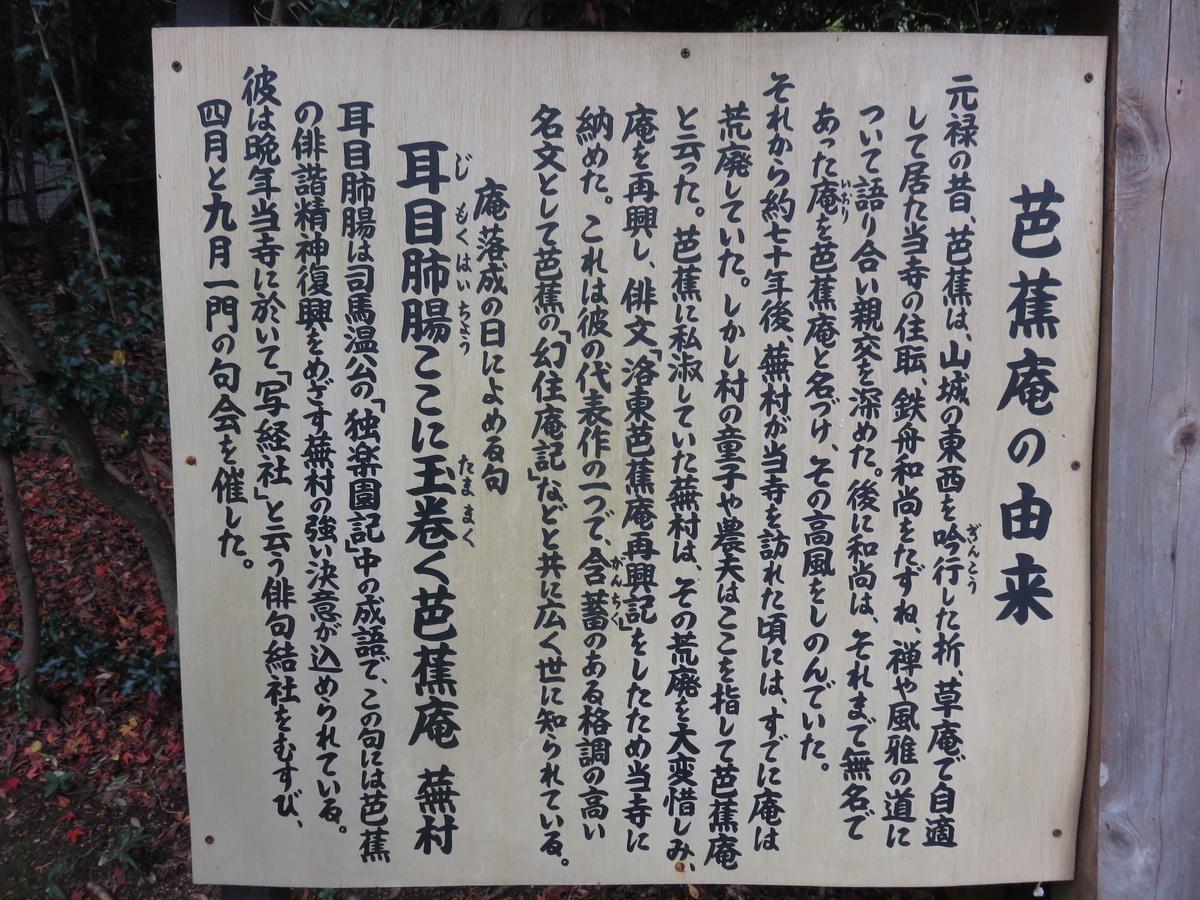 芭蕉庵の由来
元禄の昔、芭蕉は、山城の東西を吟行した折、草庵で自適
して居た当寺の住職、鉄舟和尚をたずね、禅や風雅の道に
ついて語り合い親交を深めた。後に和尚は、それまで無名で
あった庵を芭蕉庵と名づけ、その高風をしのんでいた。
それから約七十年後、蕪村が当寺を訪れた頃には、すでに庵は
荒廃していた。しかし村の童子や農夫はここを指して芭蕉庵
と云った。芭蕉に私淑していた蕪村は、その荒廃を大変惜しみ、
庵を再興し、俳文「洛東芭蕉庵再興記」をしたため当寺に
納めた。これは彼の代表作の一つで、含蓄のある格調の高い
名文として芭蕉の「幻住庵記」などと共に広く世に知られている。
庵落成の日によめる句
耳目肺腸ここに玉巻く芭蕉庵 蕪村
耳目肺腸は司馬温公の「独楽園記」中の成語で、この句には芭蕉
の俳諧精神復興をめざす蕪村の強い決意が込められている。
彼は晩年当寺に於いて「写経社」と云う俳句結社をむすび、
四月と九月一門の句会を催した。